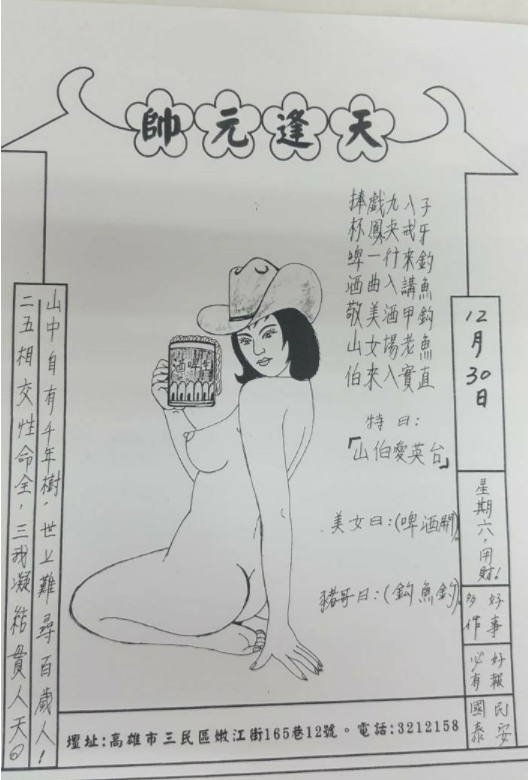 天逢元帥
子牙釣魚鈎魚直
八戒來講甲老實
九央行入酒場入
戲鳳一曲美女來
捧杯啤酒敬山伯
特曰:
「山伯愛英台」
美女曰:(啤酒開)
豬哥曰:(鈎魚釣)
生啤酒
12月30日
星期六,用財!
好事多作
好報必有
民安國泰
山中自有千年樹,世上難尋百歲人!
二五相交性命全,三我凝結貫人天。
壇址:高雄市三民區嫩江街165巷12號。電話:3212158